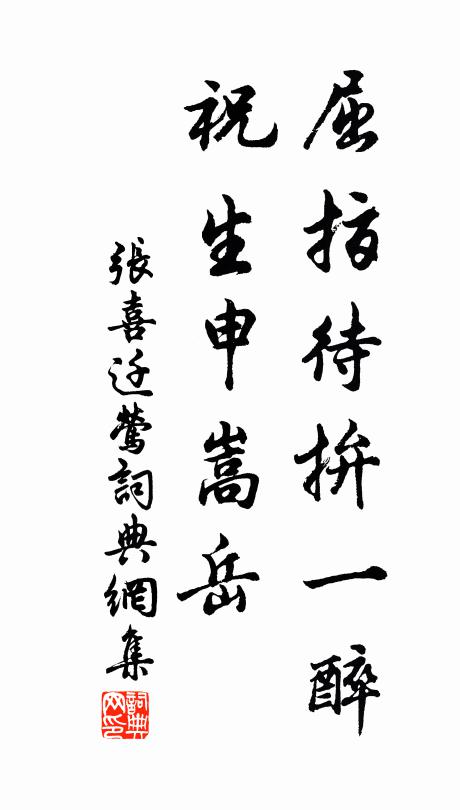 屈指待拚一醉
祝生申嵩岳
張喜迁鶯詞典網集
詞典网印